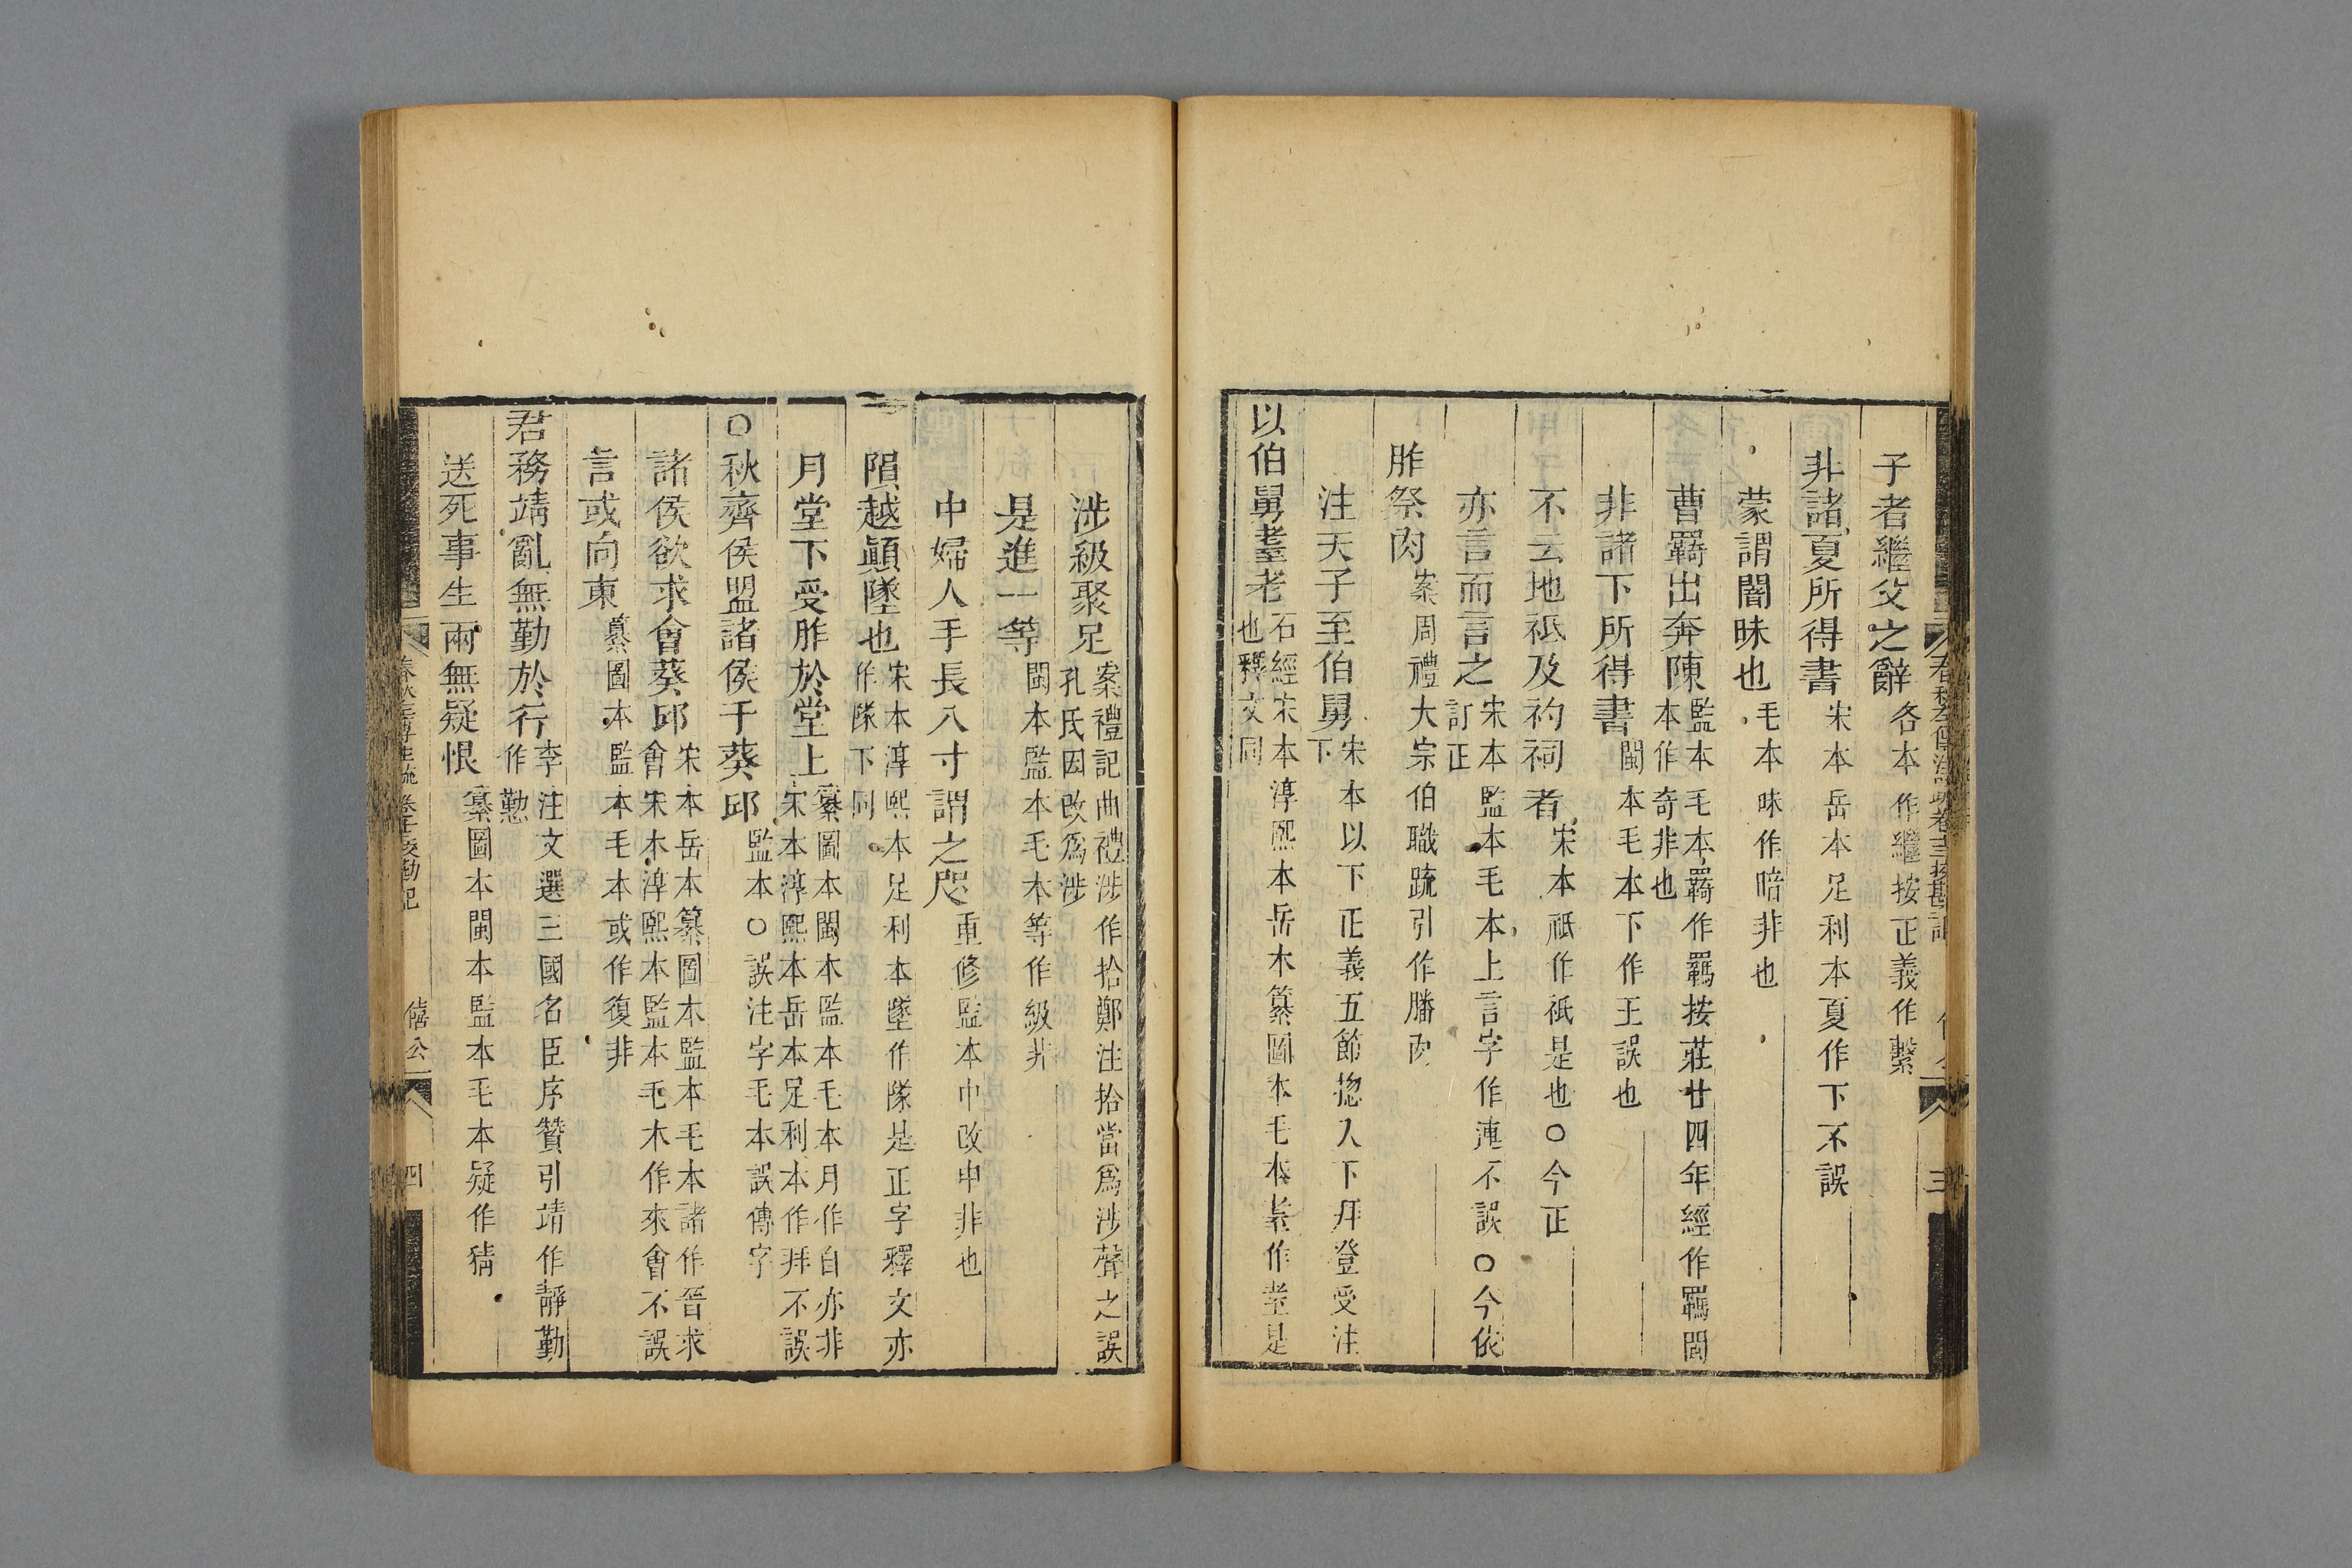 子者繼父之辭各本作繼按正義作繫
非諸夏所得書宋本岳本足利本夏作下不誤
蒙謂闇昧也毛本昧作暗非也
曹羈出奔陳監本毛本羈作羇按莊廿四年經作羈閩本作奇非也
非諸下所得書閩本毛本下作王誤也
不云地祇及礿祠者宋本祇作祗是也○今正
亦言而言之宋本監本毛本上言字作連不誤○今依訂正
胙祭肉案周禮大宗伯職疏引作膰肉
注天子至伯舅宋本以下正義五節揔入下拜登受注下
以伯舅耋老石經宋本淳熙本岳本纂圖本毛本耋作耊是也釋文同
涉級聚足案禮記曲禮涉作拾鄭注拾當爲涉聲之誤孔氏因改爲涉
是進一等閩本監本毛本等作級非
中婦人手長八寸謂之咫重修監本巾改中非也
隕越顚墜也宋本淳熙本足利本墜作隊是正字釋文亦作隊下同
月堂下受胙於堂上纂圖本閩本監本毛本月作自亦非宋本淳熙本岳本足利本作拜不誤
○秋齊侯盟諸侯于葵邱監本○誤注字毛本誤傳字
諸侯欲求會葵邱宋本岳本纂圖本監本毛本諸作晉求會宋本淳熙本監本毛本作來會不誤
言或向東纂圖本監本毛本或作復非
君務靖亂無勤於行李注文選三國名臣序贊引靖作靜勤作懃
送死事生兩無疑恨纂圖本閩本監本毛本疑作猜
春秋左傳注疏 卷十三校勘記 僖公 四